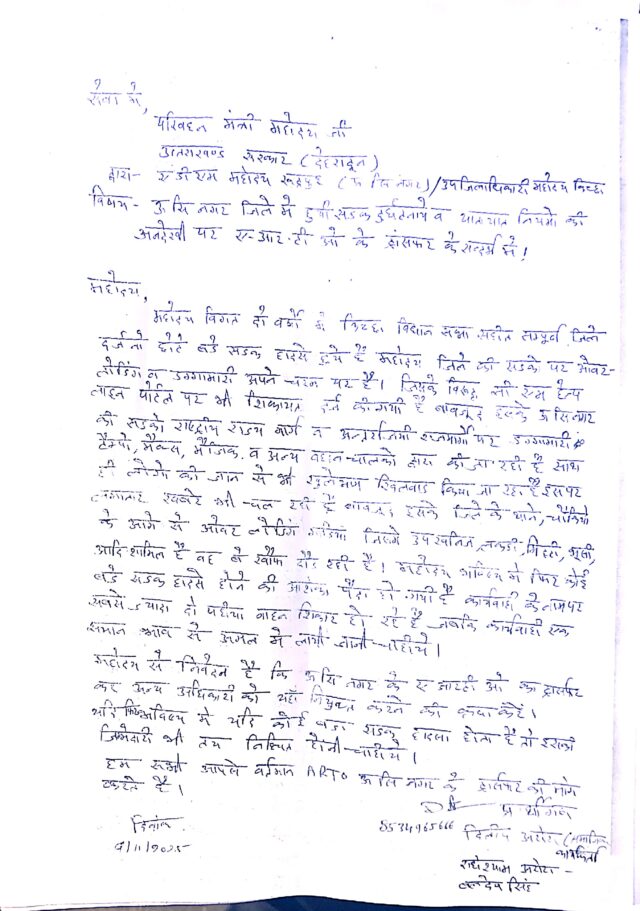 सेवा मे,
परिवहन मंत्री महोदय जी
उत्तराखण्ड सरकार (देहरादून)
द्वारा- ए डी एम महोदय रूद्रपुर (ऊ सि नगर) / उपजिलाधिकारी महोदय किच्छा
विषय- ऊ सि नगर जिले मे हुयी सडक दुर्घटनाये व यातायात नियमो की
अनदेखी पर ए-आर-टी ओ के ट्रांसफर के सन्दर्भ मे!
महोदय,
महोदय विगत दो वर्षो मे किच्छा विधान सभा सहीत सम्पूर्ण जिले
दर्जनो छोटे बडे सडक हादसे हुये है महोदय जिले की सडको पर ओवर-
लोडिंग व डग्गामारी अपने चरम पर है। जिसके विरूद्ध सी एम हेल्प
लाइन पोर्टल पर भी शिकायत दर्ज की गयी है बावजूद इसके ऊ सि नगर
की सडको राष्ट्रीय राज्य मार्ग व अन्तर्राज्यी राजमार्गो पर डग्गामारी
टैम्पो, मैक्स, मैजिक, व अन्य वहान-चालको द्वारा की जा रही है साथ
ही लोगो की जान से भी खुलेआम खिलवाड किया जा रहा है इसपर
लगातार खबरे भी चल रही है बावजूद इसके जिले के थाने, चौकियो
के आगे से ओवर लोडिंग गाडिया जिसमे उपखनिज, लकडी, गिट्टी, भूसी,
आदि शामिल है वह बे खौफ दौड रही है। महोदय भविष्य मे फिर कोई
बडे सडक हादसे होने की आशंका पैदा हो गयी है कार्यवाही के नाम पर
सबसे ज्यादा दो पहीया वाहन शिकार हो रहे है जबकि कार्यवाही एक
समान भाव से अमल मे लायी जानी चाहीये।
महोदय से निवेदन है कि ऊ सि नगर के ए आरटी ओ का ट्रांसफर
कर अन्य अधिकारी को यहाँ नियुक्त करने की कृपा करें।
यदि भविष्य मे यदि कोई बडा सडक हादसा होता है तो इसकी
जिम्मेदारी भी तय निश्चित होनी चाहीये।
हम सभी आपसे वर्तमान ARTO ऊ सि नगर के ट्रांसफर की मांग
करते है।
प्रार्थीगण
8534965666 दिलीप अरोरा (समाजिक
कार्यकर्ता
दिनांक
राधेश्याम अरोरा-
बलदेव सिंह